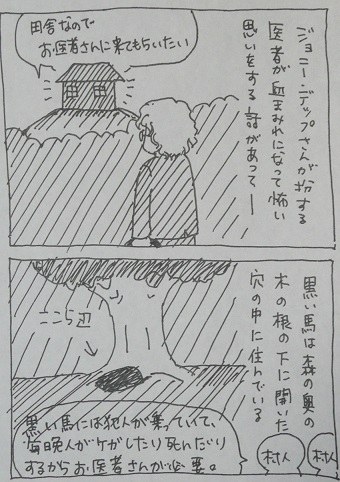 ジョニー・デップさんが扮する
医者が血まみれになって怖い
思いをする話があってー
田舎なので
お医者さんに来てもらいたい
黒い馬は森の奥の
木の根の下に開いた
穴の中に住んでいる
ここら辺
村人
村人
黒い馬には犯人が乗っていて、
毎晩人がケガしたり死んだり
するからお医者さんが必要。